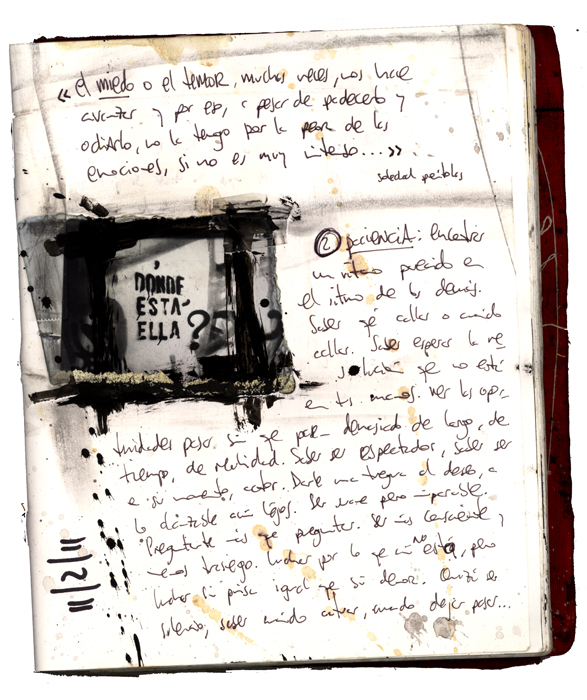 « el miedo o el temor, muchas veces, nos hace
avanzar y por eso, a pesar de padecerlo y
odiarlo, no lo tengo por la peor de las
emociones, si no es muy intenso... »
soledad puértolas
¿DONDE
ESTÁ
ELLA?
② paciencia: encontrar
un ritmo parecido en
el ritmo de los demás.
Saber qué callar o cuándo
callar. Saber esperar la re
solución que no está
en tus manos. Ver las opor-
tunidades pasar sin que pasen demasiado de largo, de
tiempo, de realidad. Saber ser espectador, saber ser
a su momento, actor. Darle una tregua al deseo, a
lo alcanzable aún lejos. Ser suave pero imparable.
Preguntarte más que preguntar. Ser más consciente y
menos trasiego. Luchar por lo que aún no está, pero
luchar sin prisa igual que sin demora. Quizá ser
silencio, saber cuándo entrar, cuándo dejar pasar...
11/2/11